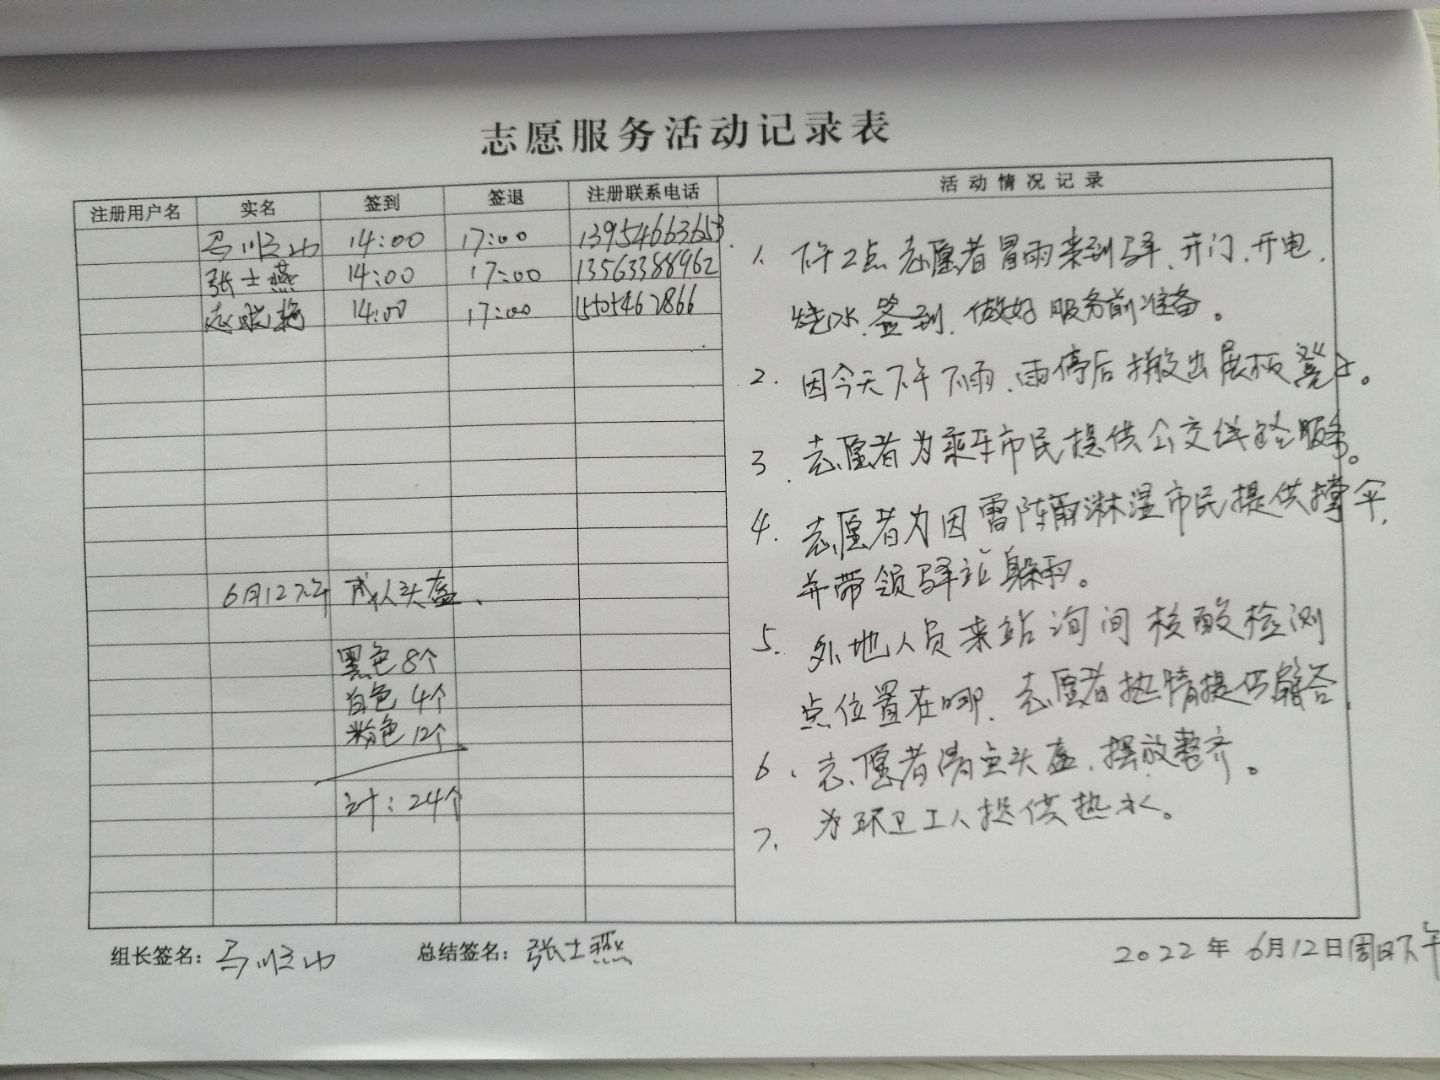 志愿服务活动记录表
注册用户名 实名 签到 签退 注册联系电话 活动情况记录
马顺山 14:00 17:00 13954663653
张士燕 14:00 17:00 13563388962
14:00 17:00 1505462866
6月12下午 成人头盔、
黑色8个
白色4个
粉色12个
计：24个
1、下午2点志愿者冒雨来到驿、开门、开电、
烧水、签到、做好服务前准备。
2、因今天下午下雨、雨停后搬出展板凳子。
3、志愿者为乘车市民提供公交线路服务。
4、志愿者为因雷阵雨淋湿市民提供撑伞，
并带领驿站躲雨。
5、外地人员来站询问核酸检测
点位置在哪、志愿者热情提供解答
6、志愿者清点头盔、摆放整齐。
7、为环卫工人提供热水。
组长签名：马顺山 总结签名：张士燕 2022年6月12日周日下午